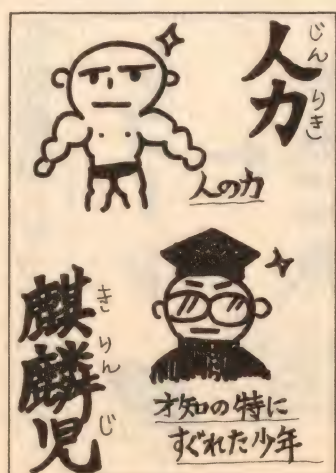 人力
じんりき
人の力
麒麟児
きりんじ
才知の特に
すぐれた少年